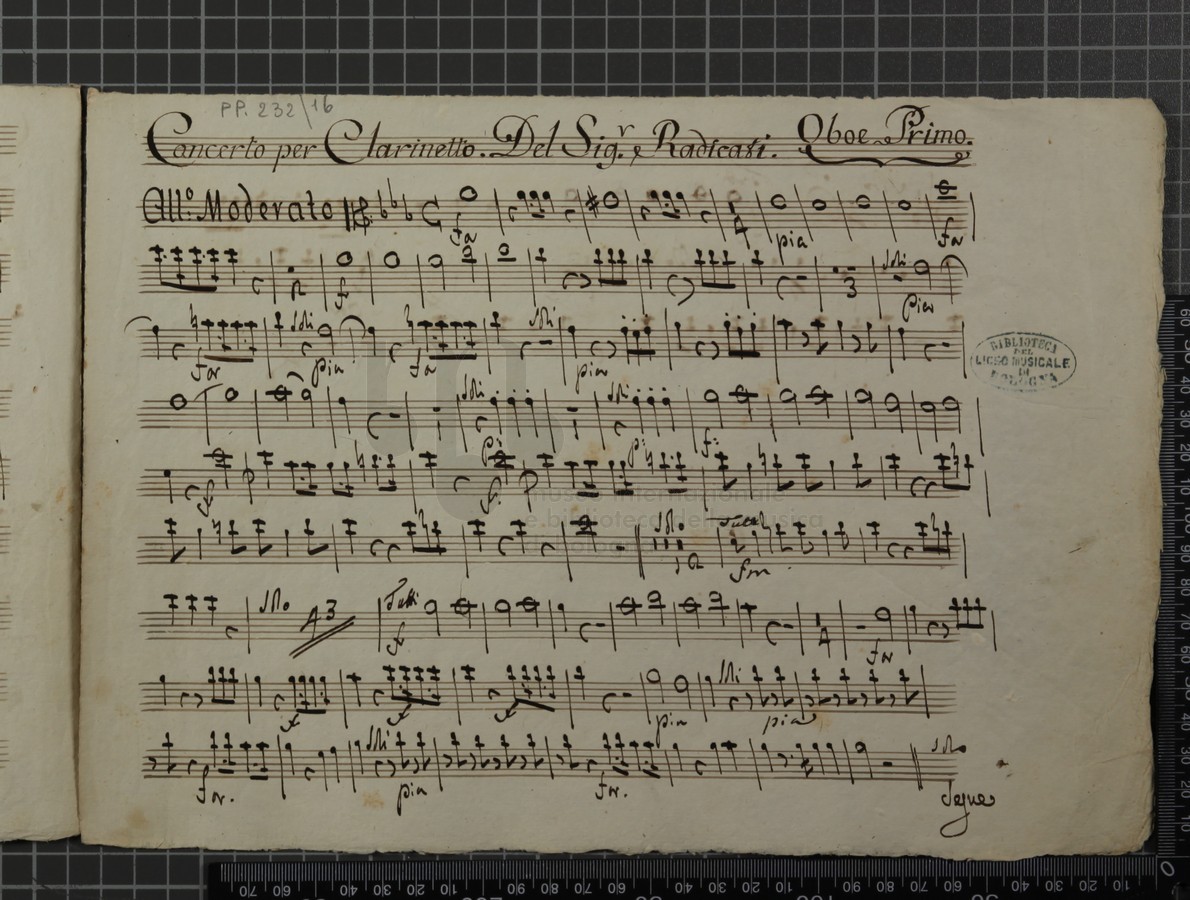 PP. 232/16
Concerto per Clarinetto. Del Sig.r Radicati. Oboe Primo.
All.o Moderato for pia for
f 3 Soli Pia
for Soli pia for Soli pia
Soli Soli f:
f. f.
Solo Tutti for
Solo 43 Tutti f for
pia Soli pia
for. Soli pia for. Solo
Segue
BIBLIOTECA
DEL
LICEO MUSICALE
DI
BOLOGNA
museo internazionale
e biblioteca della musica
di bologna